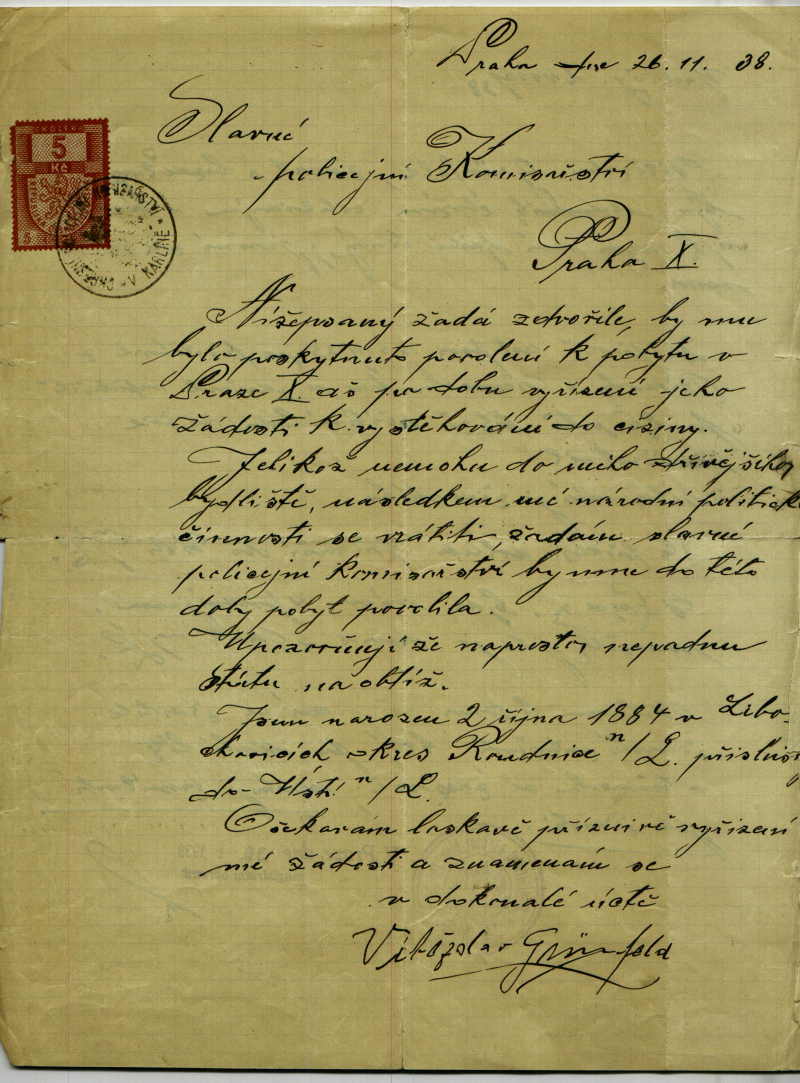 Praha dne 26. 11. 38.
KOLEK
5
Kč
V KARLÍNĚ
Slavné
policejní Komisařství
Praha X.
Nížepsaný žadá zdvořile, by mu
bylo poskytnuto povolení k pobytu v
Praze X. až po dobu vyřízení jeho
žádosti k vystěhování do ciziny.
Jelikož nemohu do mího dřívějšího
bydliště, následkem mé národní politické
činnosti se vrátiti, žadám slavné
policejní komisařství by mne do této
doby pobyt povolila.
Upozorňuji že naprosto nepadnu
státu na obtíž.
Jsem narozen 2 října 1884 v Libo-
chovicích okres Roudnice n/L. příslušný
do Ústí n/L.
Očekávám laskavě příznivé vyřízení
mé žádosti a znamenám se
v dokonalé úctě
Vítězslav Grünfeld